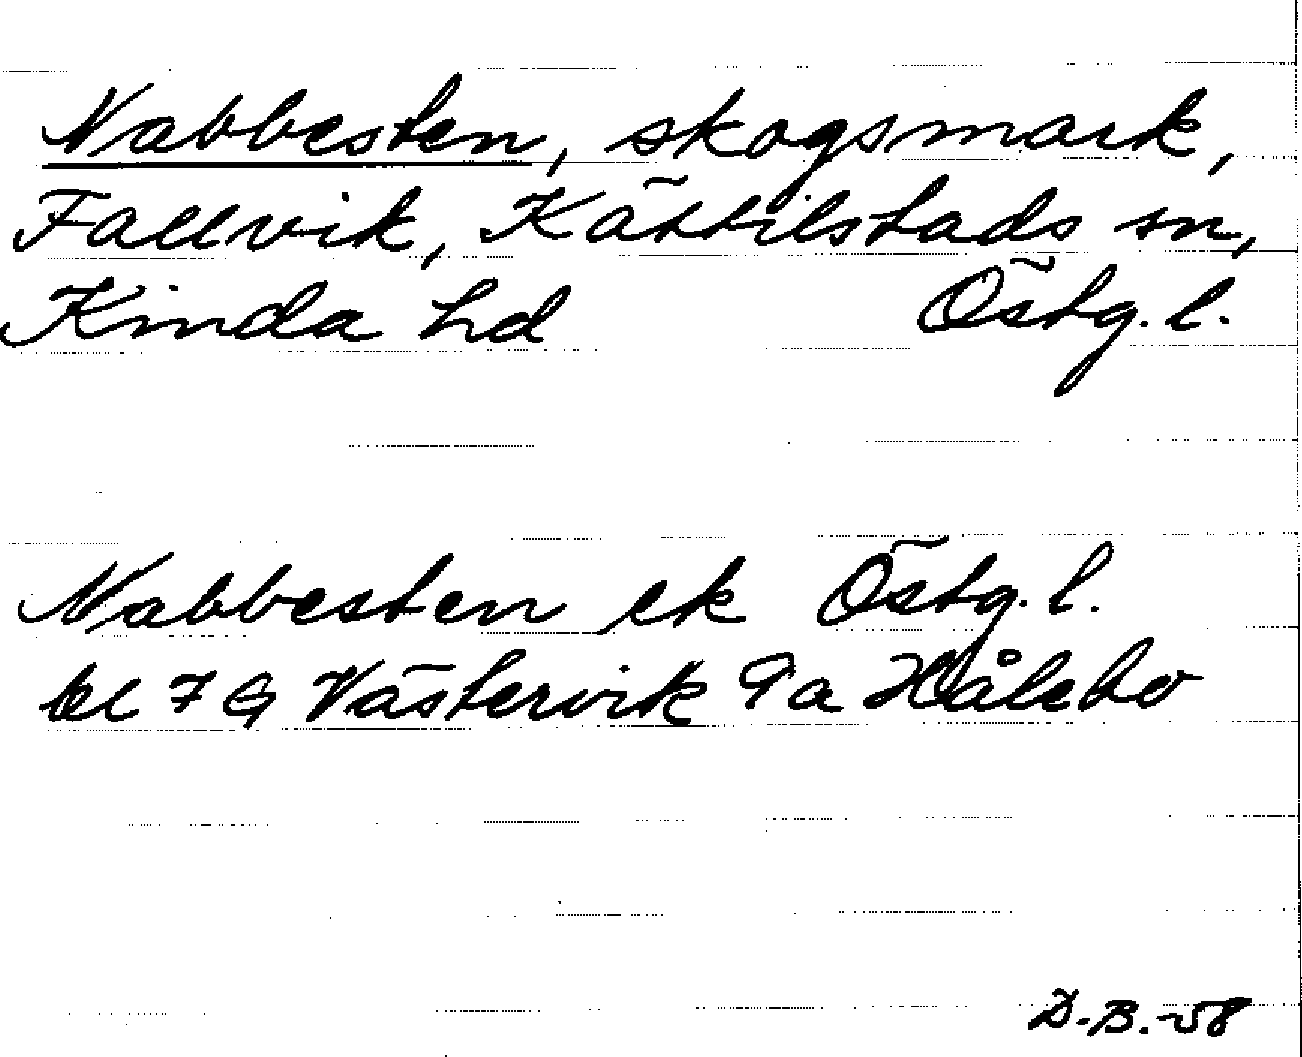 Nabbesten, skogsmark,
Fallvik, Kättilstads sn,
Kinda hd Östg. l.
Nabbesten ek Östg. l.
bl 7 G Västervik 9a Hålebo
D.B.-58